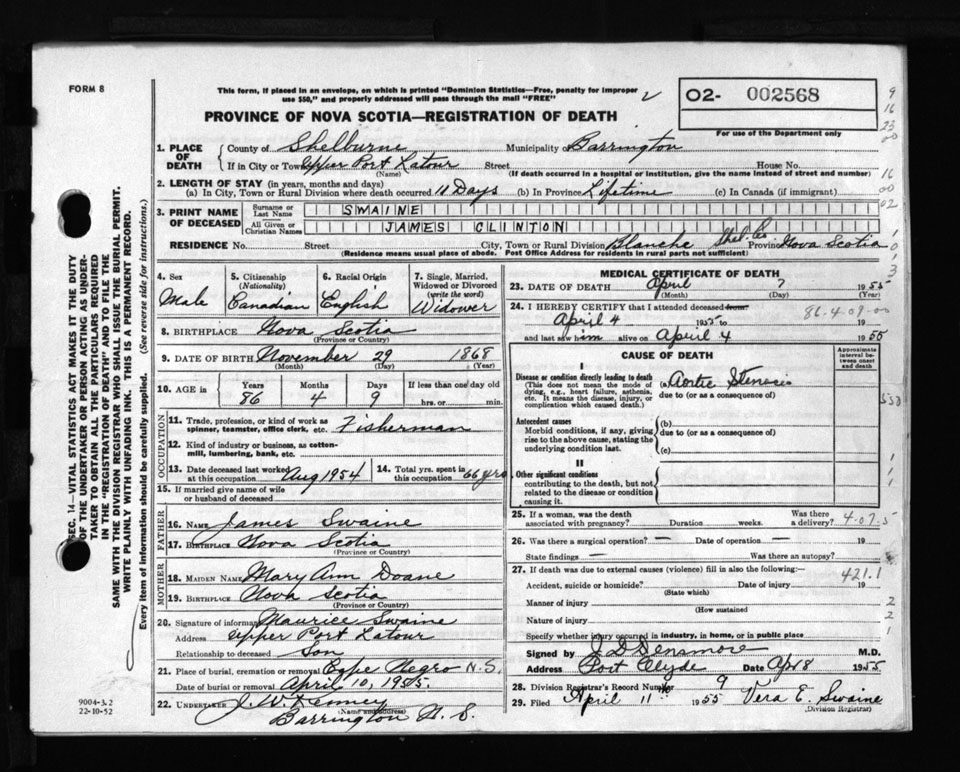 FORM 8
This form, if placed in an envelope, on which is printed "Dominion Statistics—Free, penalty for improper
use $50," and properly addressed will pass through the mail "FREE"
PROVINCE OF NOVA SCOTIA—REGISTRATION OF DEATH
O2- 002568
For use of the Department only
1. PLACE OF DEATH
County of Shelburne Municipality of Barrington
If in City or Town Upper Port Latour Street House No.
(Name) (If death occurred in a hospital or institution, give the name instead of street and number)
2. LENGTH OF STAY (in years, months and days)
(a) In City, Town or Rural Division where death occurred 11 Days (b) In Province Lifetime (c) In Canada (if immigrant)
3. PRINT NAME OF DECEASED
Surname or Last Name SWAINE
All Given or Christian Names JAMES CLINTON
RESIDENCE No. Street City, Town or Rural Division Blanche Shel. Co Province Nova Scotia
(Residence means usual place of abode. Post Office Address for residents in rural parts not sufficient)
4. Sex
Male
5. Citizenship (Nationality)
Canadian
6. Racial Origin
English
7. Single, Married, Widowed or Divorced (write the word)
Widower
8. BIRTHPLACE Nova Scotia
(Province or Country)
9. DATE OF BIRTH November 29 1868
(Month) (Day) (Year)
10. AGE in Years Months Days If less than one day old
86 4 9 hrs. or min.
OCCUPATION
11. Trade, profession, or kind of work as spinner, teamster, office clerk, etc. Fisherman
12. Kind of industry or business, as cotton-mill, lumbering, bank, etc.
13. Date deceased last worked at this occupation Aug 1954
14. Total yrs. spent in this occupation 66 yrs
15. If married give name of wife or husband of deceased
FATHER
16. NAME James Swaine
17. BIRTHPLACE Nova Scotia
(Province or Country)
MOTHER
18. MAIDEN NAME Mary Ann Doane
19. BIRTHPLACE Nova Scotia
(Province or Country)
20. Signature of informant Maurice Swaine
Address Upper Port Latour
Relationship to deceased Son
21. Place of burial, cremation or removal Cape Negro N.S.
Date of burial or removal April 10, 1955.
22. UNDERTAKER J. W. Kenney
(Name and address)
Barrington N. S.
MEDICAL CERTIFICATE OF DEATH
23. DATE OF DEATH April 7 1955
(Month) (Day) (Year)
24. I HEREBY CERTIFY that I attended deceased from 86.4.09.00
April 4 1955 to 19
and last saw him alive on April 4 1955
CAUSE OF DEATH
Approximate interval between onset and death
I
Disease or condition directly leading to death
(This does not mean the mode of dying, e.g., heart failure, asthenia, etc. It means the disease, injury, or complication which caused death.)
(a) Aortic Stenosis
due to (or as a consequence of)
Antecedent causes
Morbid conditions, if any, giving rise to the above cause, stating the underlying condition last.
(b)
due to (or as a consequence of)
(c)
II
Other significant conditions
contributing to the death, but not related to the disease or condition causing it.
25. If a woman, was the death associated with pregnancy? Duration weeks. Was there a delivery?
26. Was there a surgical operation? — Date of operation — 19
State findings — Was there an autopsy?
27. If death was due to external causes (violence) fill in also the following:—
421.1
Accident, suicide or homicide? Date of injury 19
(State which)
Manner of injury
(How sustained
Nature of injury
Specify whether injury occurred in industry, in home, or in public place
Signed by J D Densmore M.D.
Address Port Clyde Date Apl 8 1955
28. Division Registrar's Record Number 9
29. Filed April 11 1955 Vera E. Swaine
(Division Registrar)
SEC. 14—VITAL STATISTICS ACT MAKES IT THE DUTY
OF THE UNDERTAKER OR PERSON ACTING AS UNDER-
TAKER TO OBTAIN ALL THE PARTICULARS REQUIRED
IN THE "REGISTRATION OF DEATH" AND TO FILE THE
SAME WITH THE DIVISION REGISTRAR WHO SHALL ISSUE THE BURIAL PERMIT.
WRITE PLAINLY WITH UNFADING INK. THIS IS A PERMANENT RECORD.
Every item of information should be carefully supplied. (See reverse side for instructions.)
9004-3.2
22-10-52